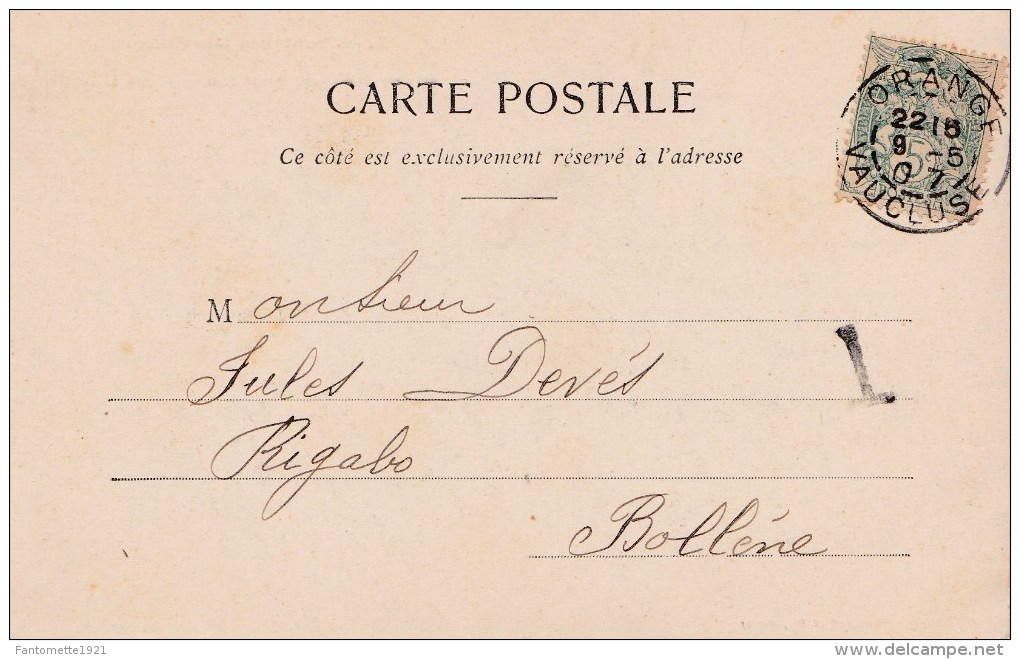 CARTE POSTALE
Ce côté est exclusivement réservé à l'adresse
ORANGE
22 15
9 -5
07
VAUCLUSE
5
Monsieur
Jules Devés
L
Rigabo
Bolléne
Fantomette1921
www.delcampe.net